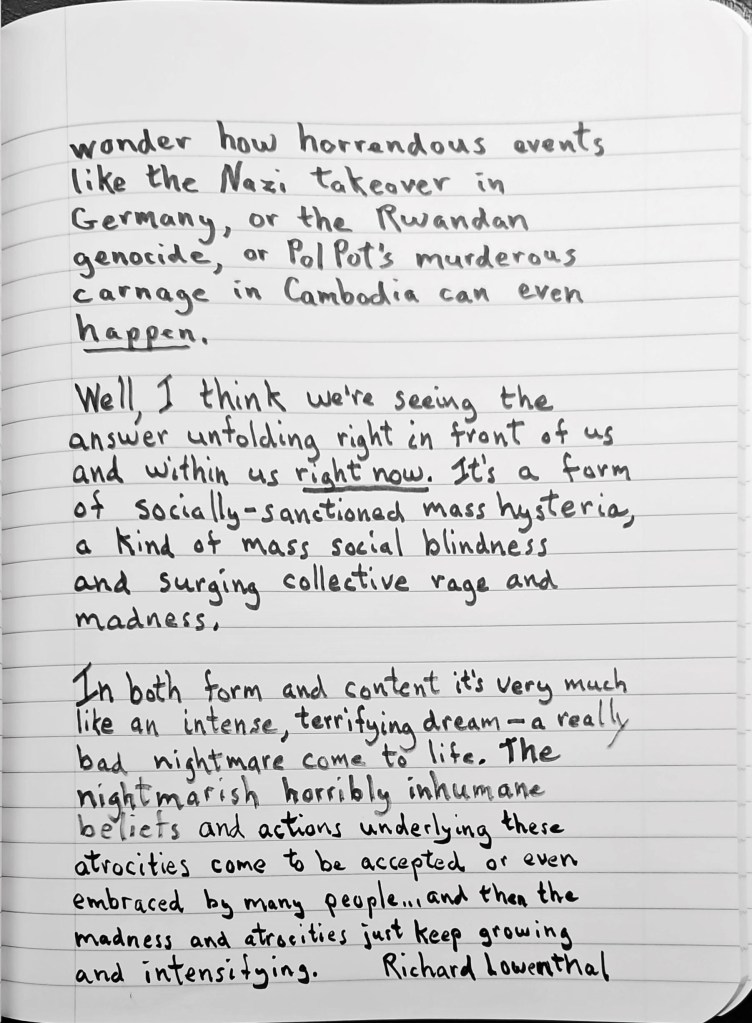 wonder how horrendous events
like the Nazi takeover in
Germany, or the Rwandan
genocide, or Pol Pot's murderous
carnage in Cambodia can even
happen.
Well, I think we're seeing the
answer unfolding right in front of us
and within us right now. It's a form
of socially-sanctioned mass hysteria,
a kind of mass social blindness
and surging collective rage and
madness.
In both form and content it's very much
like an intense, terrifying dream – a really
bad nightmare come to life. The
nightmarish horribly inhumane
beliefs and actions underlying these
atrocities come to be accepted or even
embraced by many people... and then the
madness and atrocities just keep growing
and intensifying. Richard Lowenthal